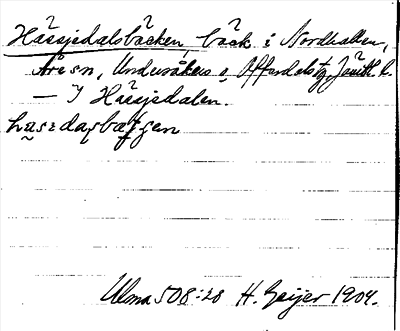 Hässjedalsbäcken, bäck i Nordhallen,
Åre sn, Undersåkers o Offerdals tg, Jämtl. l.
— I Hässjedalen.
Ulma 508:28 H. Geijer 1904.